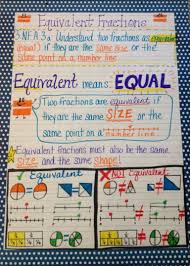 Equivalent Fractions
3.NF.A.3a Understand two fractions as equivalent
(equal) if they are the same size or the
same point on a number line.
Equivalent means EQUAL
Two fractions are equivalent if
they are the same SIZE or the
same point on a
Equivalent fractions must also be the same
size and the same shape!
Equivalent
NOT Equivalent